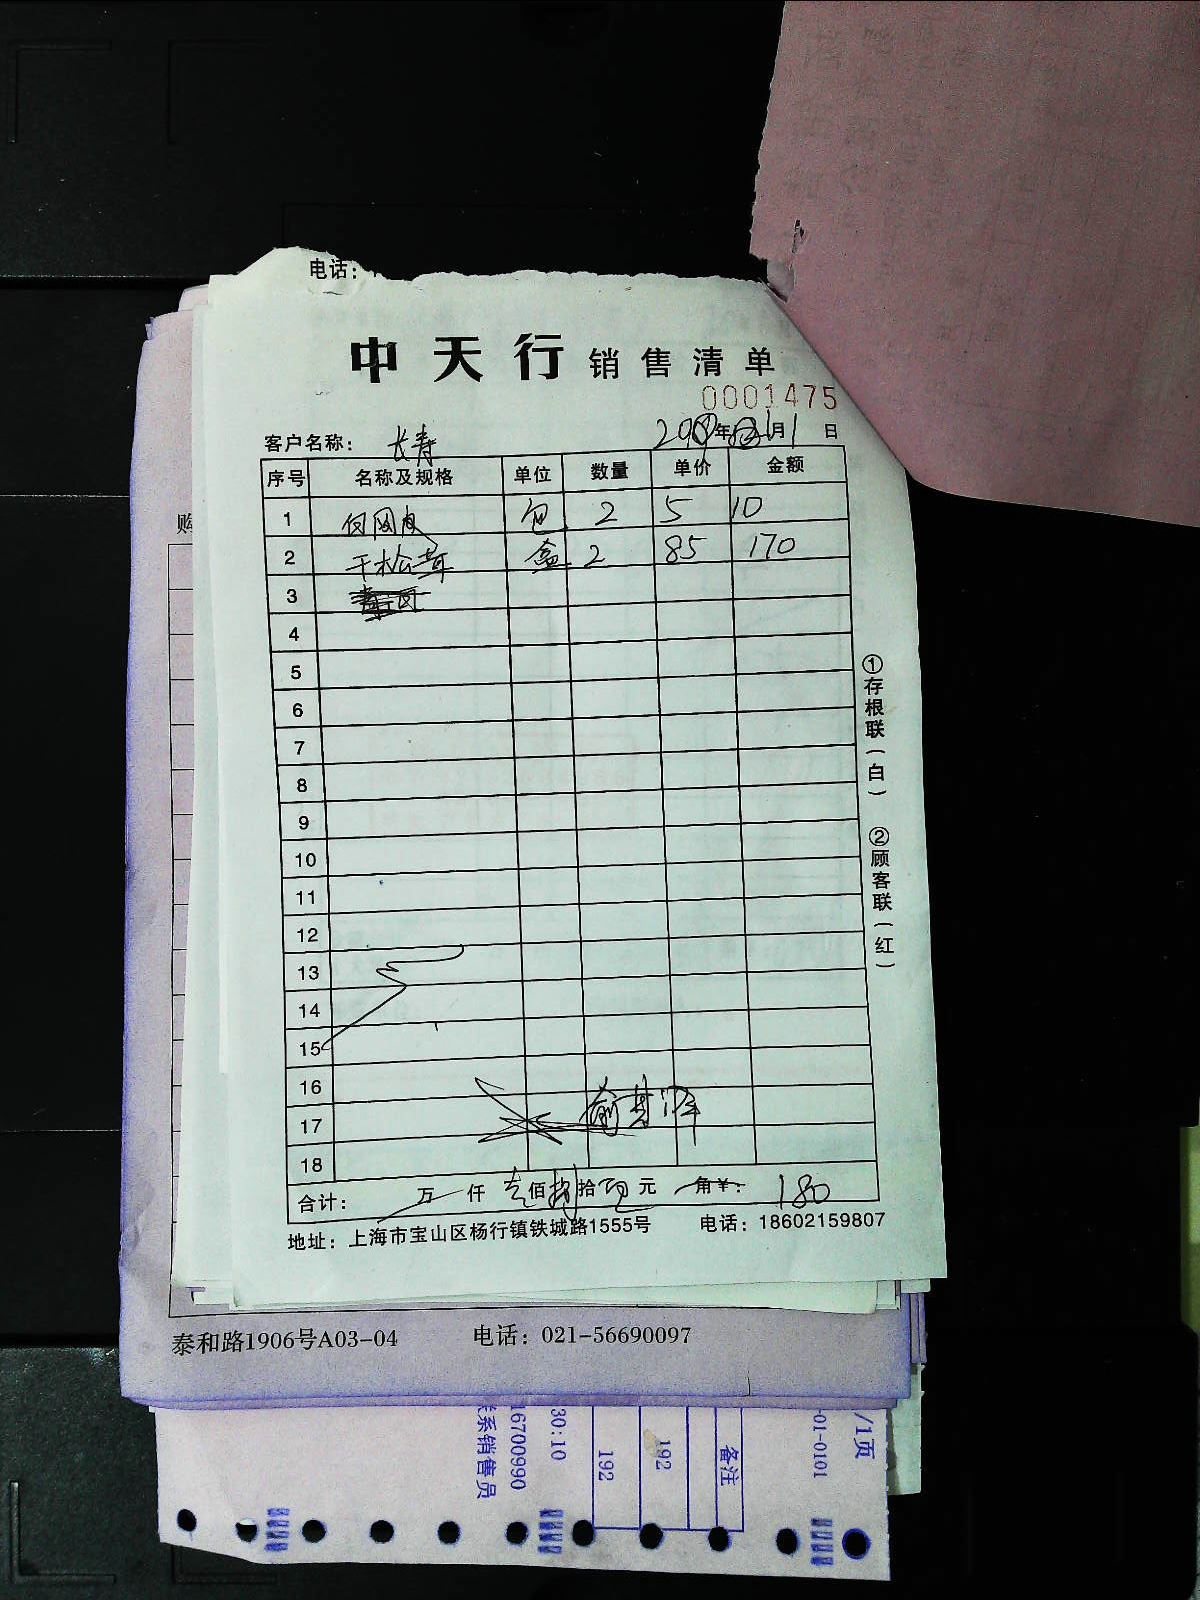 电话：
中天行 销售清单
0001475
客户名称： 长寿 年 月 1 日
序号 名称及规格 单位 数量 单价 金额
1 包 2 5 10
2 干松茸 盒 2 85 170
3
4
5
6
7
8
9
10
11
12
13
14
15
16
17
18
合计： 万 仟 壹佰捌拾 元 角￥： 180
地址：上海市宝山区杨行镇铁城路1555号 电话：18602159807
①存根联（白） ②顾客联（红）
购
泰和路1906号A03-04 电话：021-56690097
/1页
-01-0101
备注
192
192
30:10
16700990
系销售员